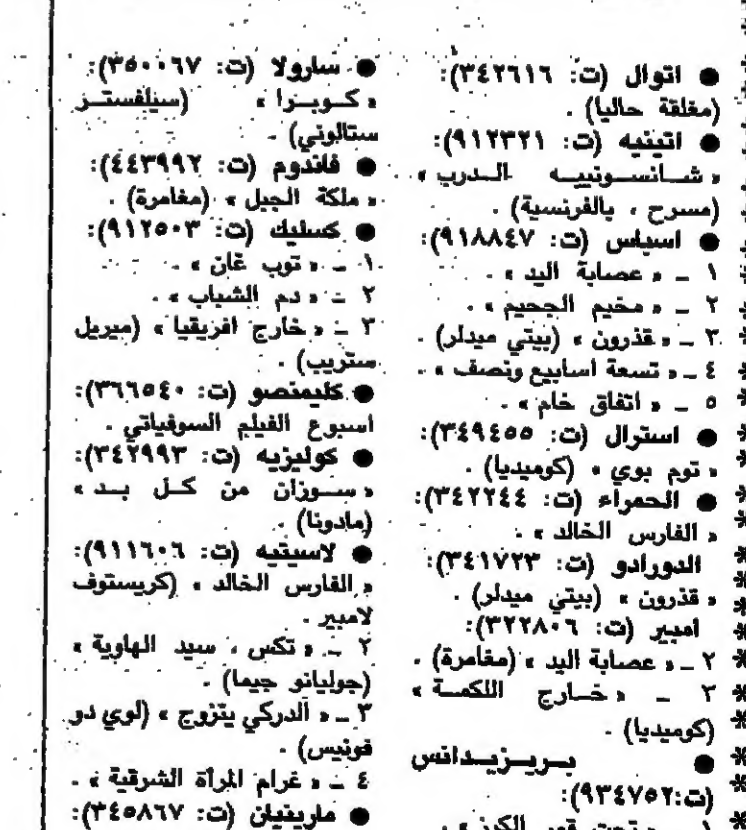 ● اتوال (ت: ٣٤٢٦١٦):
(مغلقة حاليا) .
● اتينيه (ت: ٩١٢٣٢١):
« شــانسـونييـه الـدرب »
(مسرح ، بالفرنسية) .
● اسباس (ت: ٩١٨٨٤٧):
١ ــ « عصابة اليد » .
٢ ــ « مخيم الجحيم » .
٣ ــ « قذرون » (بيتي ميدلر) .
٤ ــ « تسعة اسابيع ونصف » .
٥ ــ « اتفاق خام » .
● استرال (ت: ٣٤٩٤٥٥):
« توم بوي » (كوميديا) .
● الحمراء (ت: ٣٤٢٢٤٤):
« الفارس الخالد » .
الدورادو (ت: ٣٤١٧٢٣):
« قذرون » (بيتي ميدلر) .
امبير (ت: ٣٢٢٨٠٦):
٢ ــ « عصابة اليد » (مغامرة) .
٣ ــ « خـارج اللكمـة »
(كوميديا) .
● بـريـزيـدانس
(ت:٩٣٤٧٥٢):
● سارولا (ت: ٣٥٠٠٦٧):
« كـوبـرا » (سيلفستـر
ستالوني) .
● فاندوم (ت: ٤٤٣٩٩٢):
« ملكة الجبل » (مغامرة) .
● كسليك (ت: ٩١٢٥٠٣):
١ ــ « توب غان » .
٢ ــ « دم الشباب » .
٣ ــ « خارج افريقيا » (ميريل
ستريب) .
● كليمنصو (ت: ٣٦٦٥٤٠):
اسبوع الفيلم السوفياتي .
● كوليزيه (ت: ٣٤٢٩٩٣):
« سـوزان من كـل بـد »
(مادونا) .
● لاسيتيه (ت: ٩١١٦٠٦):
« الفارس الخالد » (كريستوف
لامبير .
٢ ــ « تكس ، سيد الهاوية »
(جوليانو جيما) .
٣ ــ « الدركي يتزوج » (لوي دو
فونيس) .
٤ ــ « غرام المرأة الشرقية » .
● ماريفيان (ت: ٣٤٥٨٦٧):